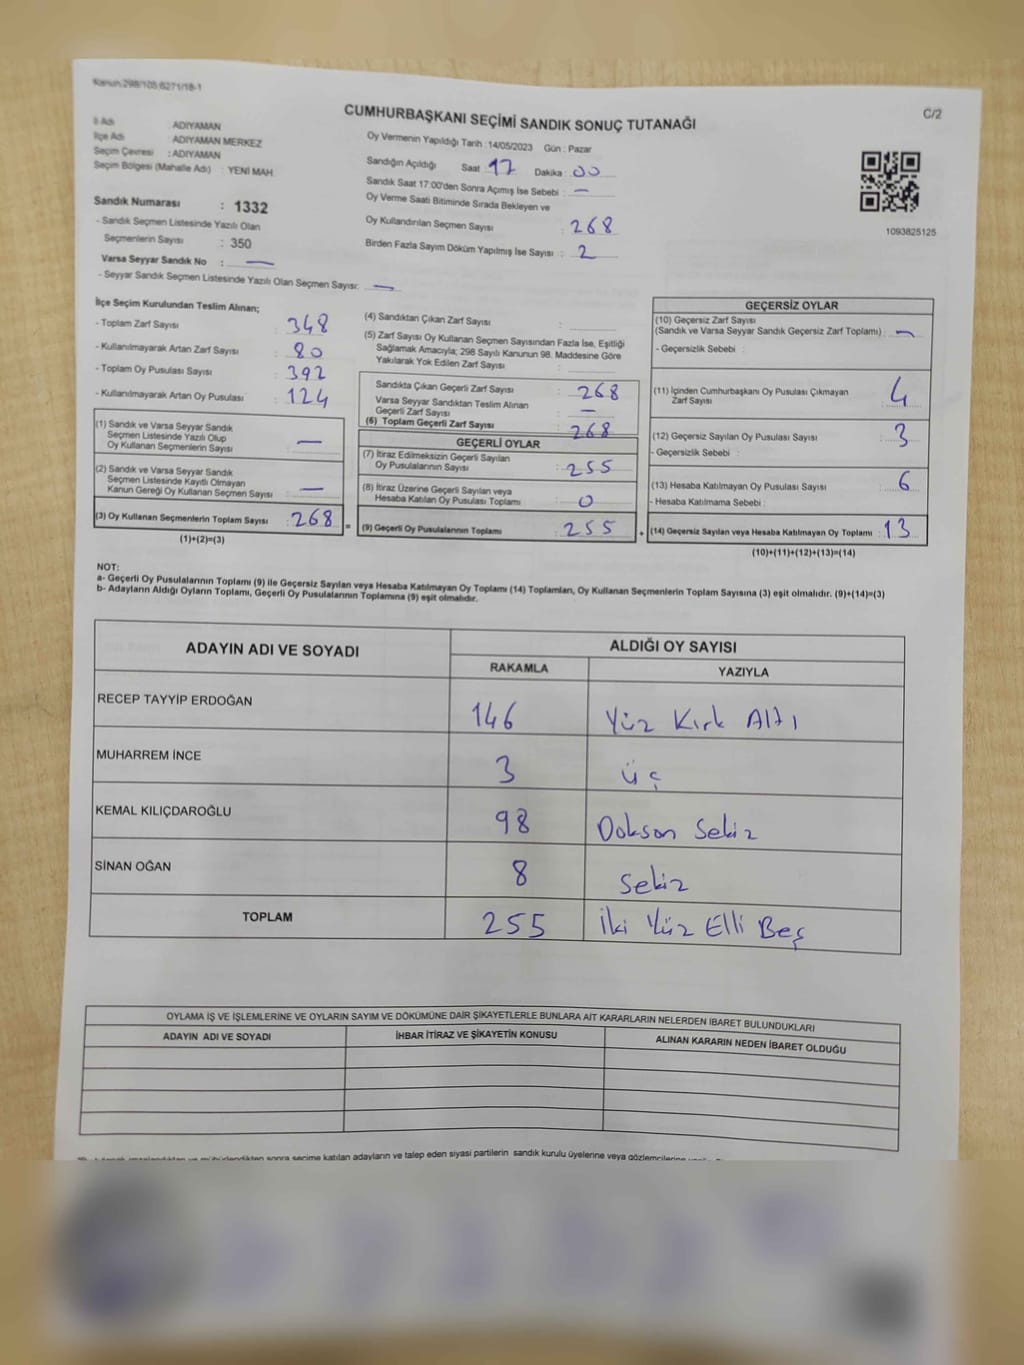 Kanun:298/105;6271/18-1
C/2
CUMHURBAŞKANI SEÇİMİ SANDIK SONUÇ TUTANAĞI
İl Adı : ADIYAMAN
İlçe Adı : ADIYAMAN MERKEZ
Seçim Çevresi : ADIYAMAN
Seçim Bölgesi (Mahalle Adı) : YENİ MAH.
Oy Vermenin Yapıldığı Tarih : 14/05/2023 Gün : Pazar
Sandığın Açıldığı Saat : 17 Dakika : 00
Sandık Saat 17:00'den Sonra Açımış İse Sebebi : —
Oy Verme Saati Bitiminde Sırada Bekleyen ve
Oy Kullandırılan Seçmen Sayısı : 268
Birden Fazla Sayım Döküm Yapılmış İse Sayısı : 2
1093825125
Sandık Numarası : 1332
- Sandık Seçmen Listesinde Yazılı Olan
Seçmenlerin Sayısı : 350
Varsa Seyyar Sandık No : —
- Seyyar Sandık Seçmen Listesinde Yazılı Olan Seçmen Sayısı: —
İlçe Seçim Kurulundan Teslim Alınan;
- Toplam Zarf Sayısı : 348
- Kullanılmayarak Artan Zarf Sayısı : 80
- Toplam Oy Pusulası Sayısı : 392
- Kullanılmayarak Artan Oy Pusulası : 124
(1) Sandık ve Varsa Seyyar Sandık
Seçmen Listesinde Yazılı Olup
Oy Kullanan Seçmenlerin Sayısı : —
(2) Sandık ve Varsa Seyyar Sandık
Seçmen Listesinde Kayıtlı Olmayan
Kanun Gereği Oy Kullanan Seçmen Sayısı : —
(3) Oy Kullanan Seçmenlerin Toplam Sayısı : 268 =
(1)+(2)=(3)
(4) Sandıktan Çıkan Zarf Sayısı :
(5) Zarf Sayısı Oy Kullanan Seçmen Sayısından Fazla İse, Eşitliği
Sağlamak Amacıyla; 298 Sayılı Kanunun 98. Maddesine Göre
Yakılarak Yok Edilen Zarf Sayısı :
Sandıkta Çıkan Geçerli Zarf Sayısı : 268
Varsa Seyyar Sandıktan Teslim Alınan
Geçerli Zarf Sayısı : —
(6) Toplam Geçerli Zarf Sayısı : 268
GEÇERLİ OYLAR
(7) İtiraz Edilmeksizin Geçerli Sayılan
Oy Pusulalarının Sayısı : 255
(8) İtiraz Üzerine Geçerli Sayılan veya
Hesaba Katılan Oy Pusulası Toplamı : 0
(9) Geçerli Oy Pusulalarının Toplamı : 255 +
GEÇERSİZ OYLAR
(10) Geçersiz Zarf Sayısı
(Sandık ve Varsa Seyyar Sandık Geçersiz Zarf Toplamı) : —
- Geçersizlik Sebebi :
(11) İçinden Cumhurbaşkanı Oy Pusulası Çıkmayan
Zarf Sayısı : 4
(12) Geçersiz Sayılan Oy Pusulası Sayısı : 3
- Geçersizlik Sebebi :
(13) Hesaba Katılmayan Oy Pusulası Sayısı : 6
- Hesaba Katılmama Sebebi :
(14) Geçersiz Sayılan veya Hesaba Katılmayan Oy Toplamı : 13
(10)+(11)+(12)+(13)=(14)
NOT:
a- Geçerli Oy Pusulalarının Toplamı (9) ile Geçersiz Sayılan veya Hesaba Katılmayan Oy Toplamı (14) Toplamları, Oy Kullanan Seçmenlerin Toplam Sayısına (3) eşit olmalıdır. (9)+(14)=(3)
b- Adayların Aldığı Oyların Toplamı, Geçerli Oy Pusulalarının Toplamına (9) eşit olmalıdır.
ADAYIN ADI VE SOYADI
ALDIĞI OY SAYISI
RAKAMLA YAZIYLA
RECEP TAYYİP ERDOĞAN 146 Yüz Kırk Altı
MUHARREM İNCE 3 Üç
KEMAL KILIÇDAROĞLU 98 Doksan Sekiz
SİNAN OĞAN 8 Sekiz
TOPLAM 255 İki Yüz Elli Beş
OYLAMA İŞ VE İŞLEMLERİNE VE OYLARIN SAYIM VE DÖKÜMÜNE DAİR ŞİKAYETLERLE BUNLARA AİT KARARLARIN NELERDEN İBARET BULUNDUKLARI
ADAYIN ADI VE SOYADI İHBAR İTİRAZ VE ŞİKAYETİN KONUSU ALINAN KARARIN NEDEN İBARET OLDUĞU
sonra seçime katılan adayların ve talep eden siyasi partilerin sandık kurulu üyelerine veya gözlemcilerine